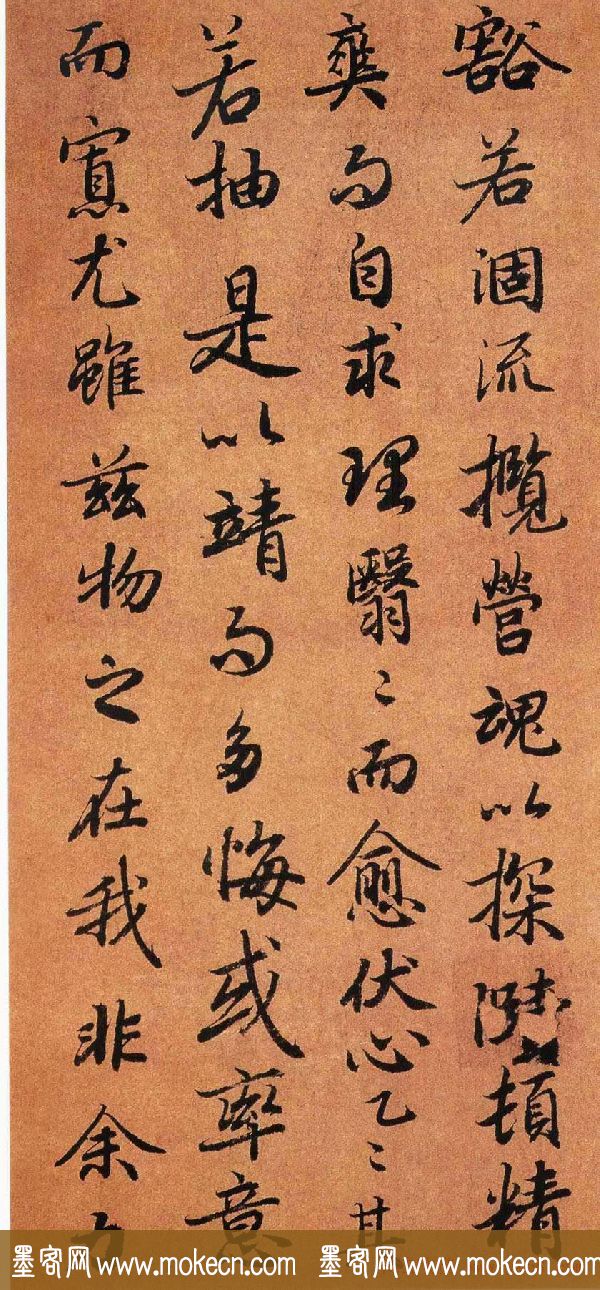 豁若涸流攬營魂以探賾頓精
爽而自求理翳〻而愈伏心乙〻其
若抽是以靖而多悔或率意
而寡尤雖茲物之在我非余力
墨客网 www.mokecn.com 墨客网 www.mokecn.com